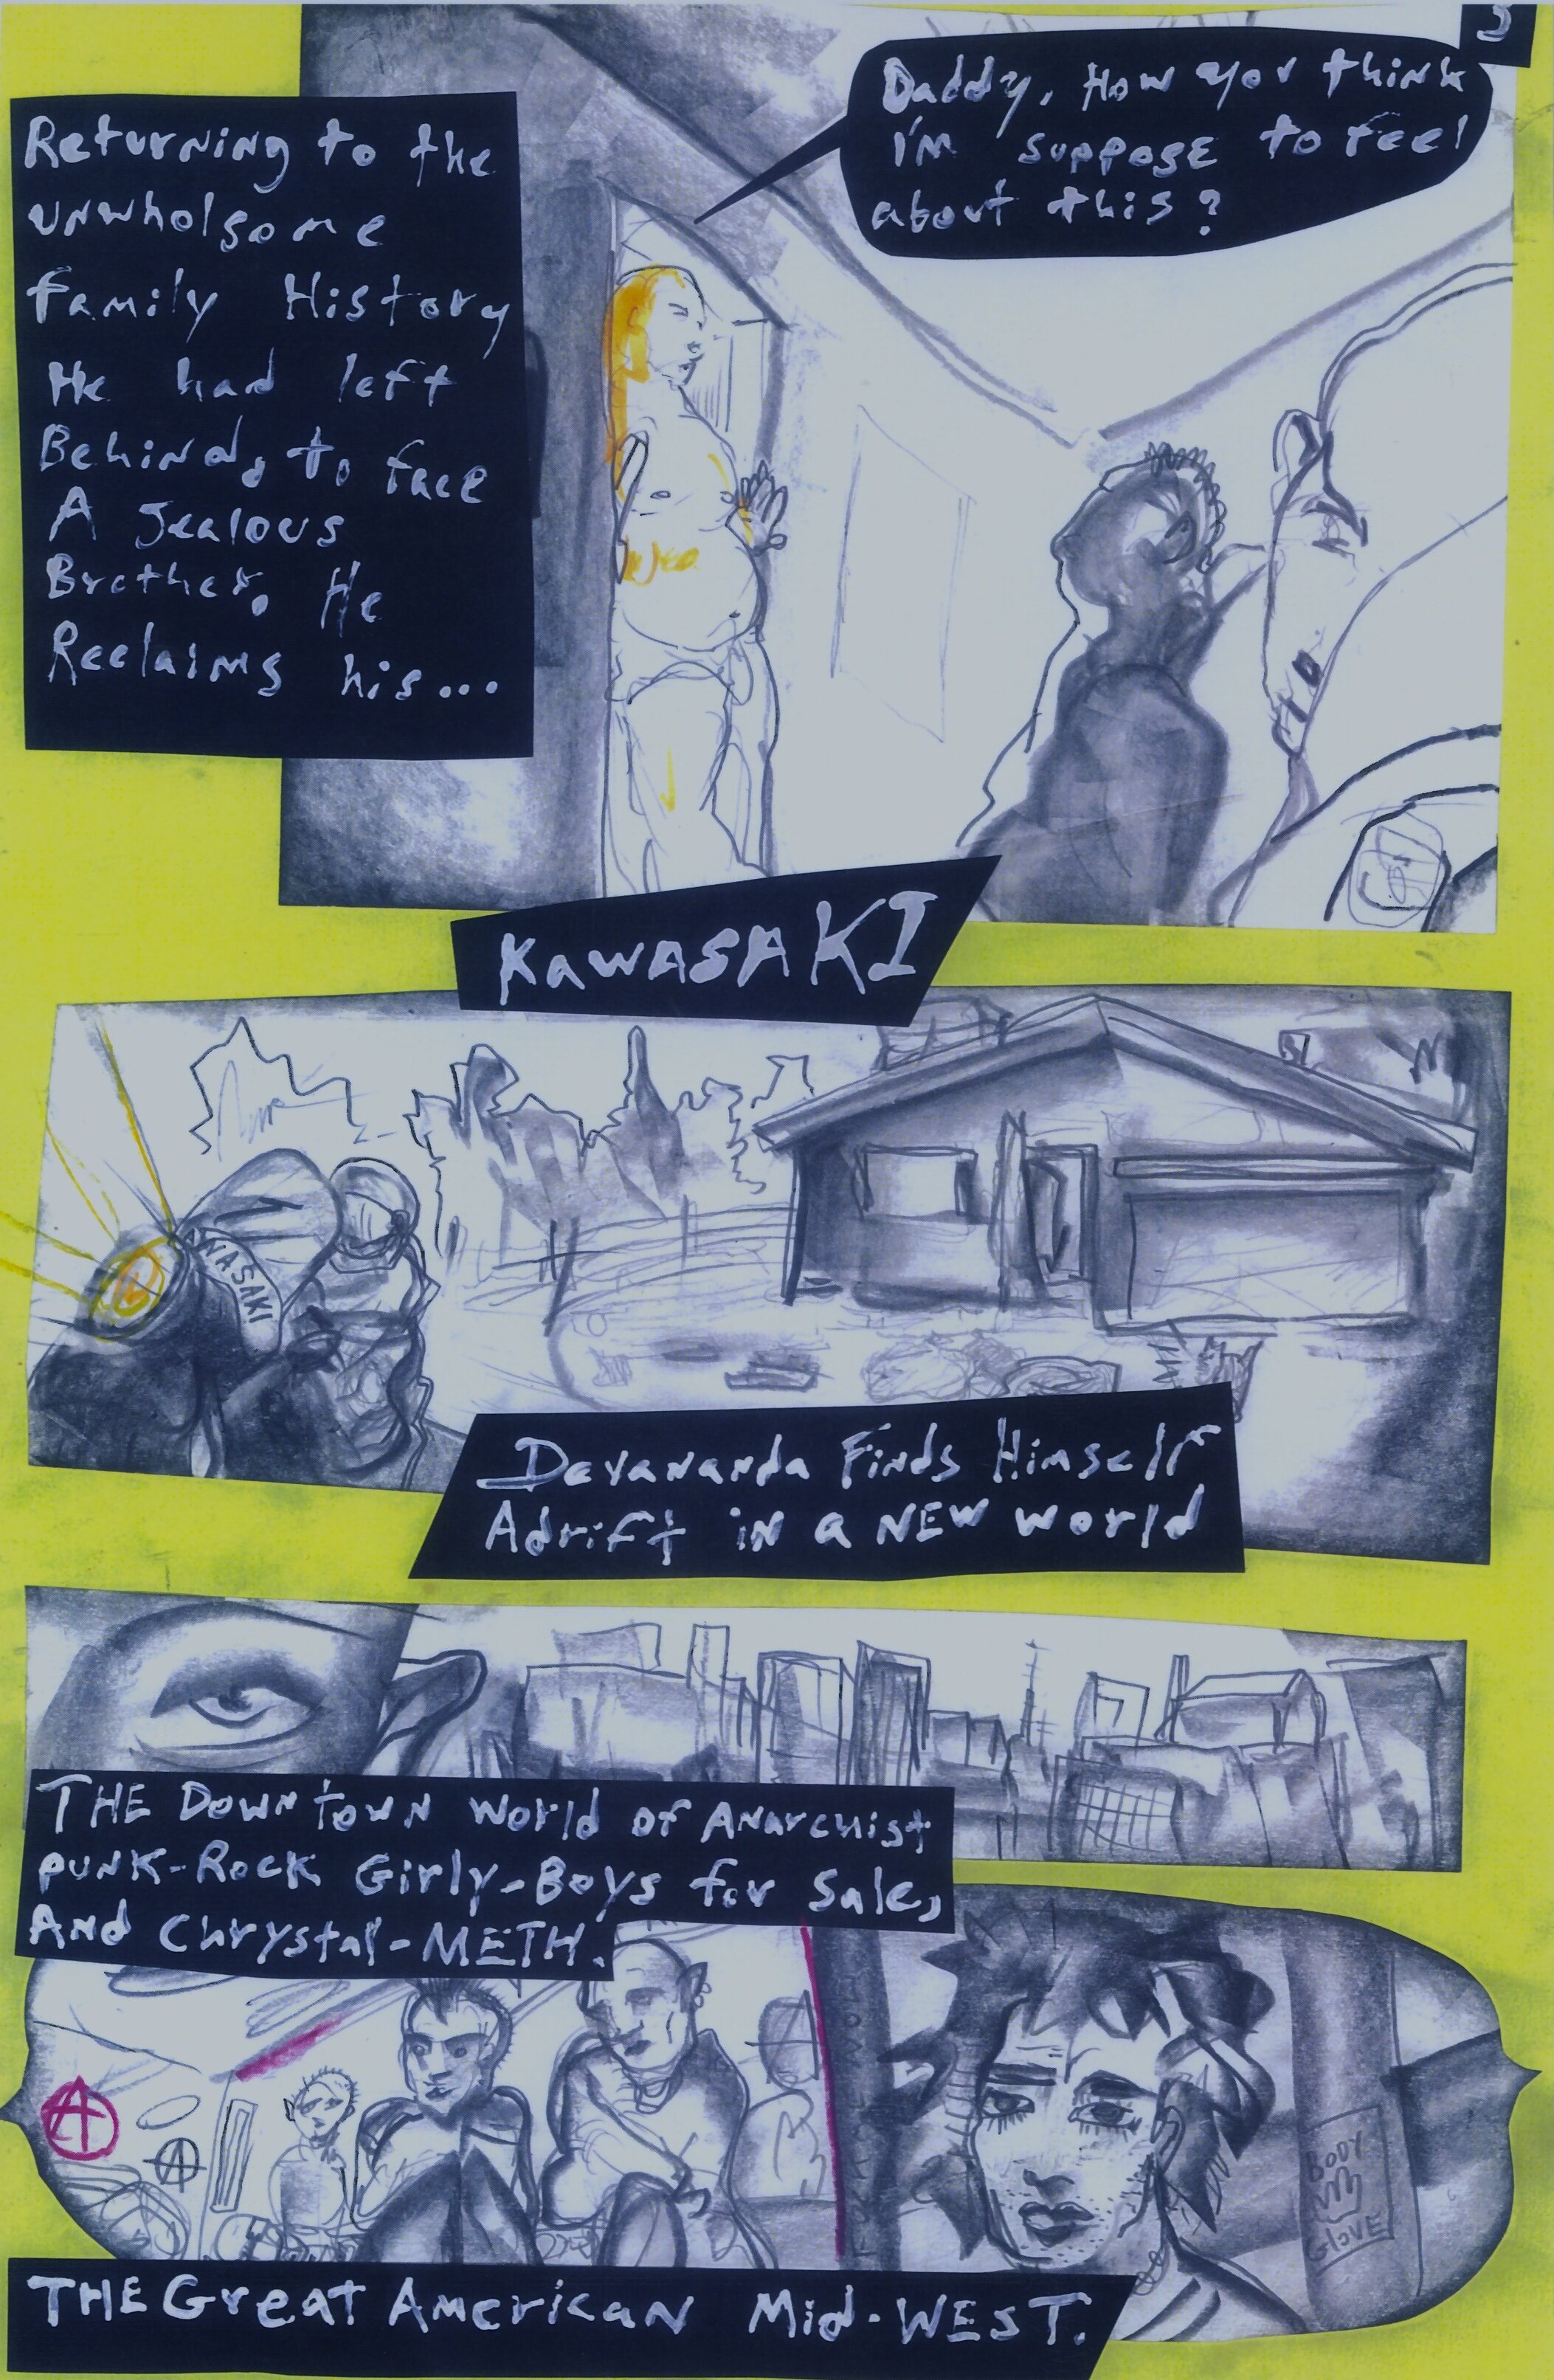 3
Returning to the
unwholsome
family History
He had left
Behind, to face
A Jealous
Brother. He
Reclaims his...
Daddy, How you think
I'm suppose to feel
about this?
KawasaKI
NASAKI
Devananda Finds Himself
Adrift in a NEW world
THE DownTown World of Anarchist
punk-Rock Girly-Boys for Sale,
And Chrystal-METH.
A
A
BODY
GlOVE
THE Great American Mid-WEST.